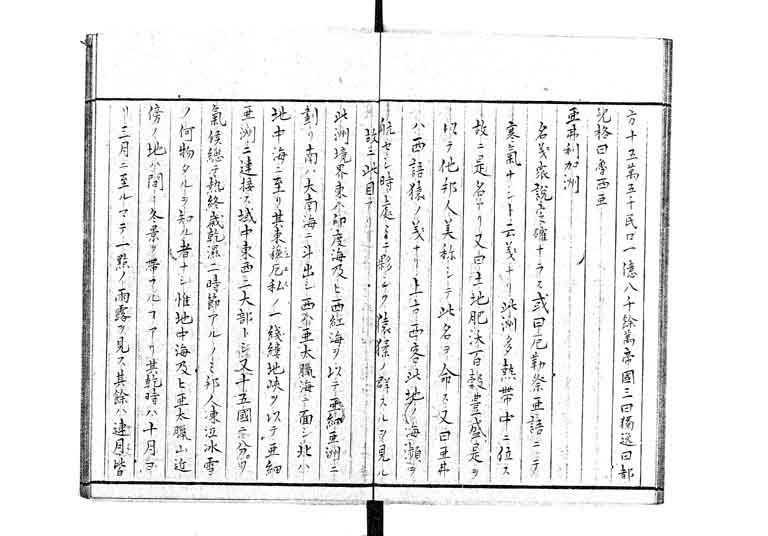 方十五萬五千民口一億八千餘萬帝國三曰獨逸曰都
兒格曰魯西亞
亜弗利加洲
名義衆説定確ナラス或曰厄勒祭亜語ニテ
寒氣ナシト云義ナリ此洲多熱帯中ニ位ス
故ニ是名アリ又曰土地肥沃百穀豊盛是ヲ
以テ他邦人美称シテ此名ヲ命ス又曰亜弗
ハ西語猿ノ義ナリ上古西客此地ノ海瀕ヲ
航セシ時處〻ニ夥シク猿猱ノ群スルヲ見ル
故ニ此目アリ
此洲境界東ハ印度海及ヒ西紅海ヲ以テ亜細亜洲ニ
劃リ南ハ大南海ニ斗出シ西ハ亜太臘海ニ面シ北ハ
地中海ニ至リ其東穐厄私ノ一綫縷地峡ヲ以テ亜細
亜洲ニ連接ス域中東西二大部トシ又十五國ニ分ツ
氣候總テ熱終歳乾濕二時節アルノミ邦人凍沍冰雪
ノ何物タルヲ知ル者ナシ惟地中海及ヒ亜太臘山近
傍ノ地ハ間〻冬景ヲ帯フルコアリ其乾時ハ十月ヨ
リ三月ニ至ルマテ一點ノ雨露ヲ見ス其餘ハ連月皆